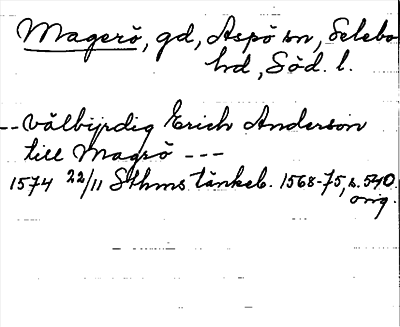 Magerö, gd, Aspö sn, Selebo
hd, Söd. l.
-- välbijrdig Erich Anderson
till Magrö ---
1574 22/11 Sthms tänkeb. 1568-75, s. 540.
orig.